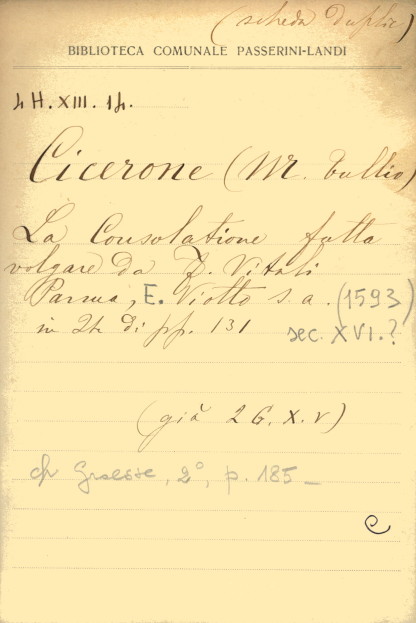 (scheda duplic)
BIBLIOTECA COMUNALE PASSERINI-LANDI
4 H. XIII. 14.
Cicerone (M. Tullio)
La Consolatione fatta
volgare da F. Vitali
Parma, E. Viotto s. a. (1593)
in 24 di pp. 131 sec. XVI.?
(già 2 G. X. V)
cfr Graesse, 2°, p. 185 —
C